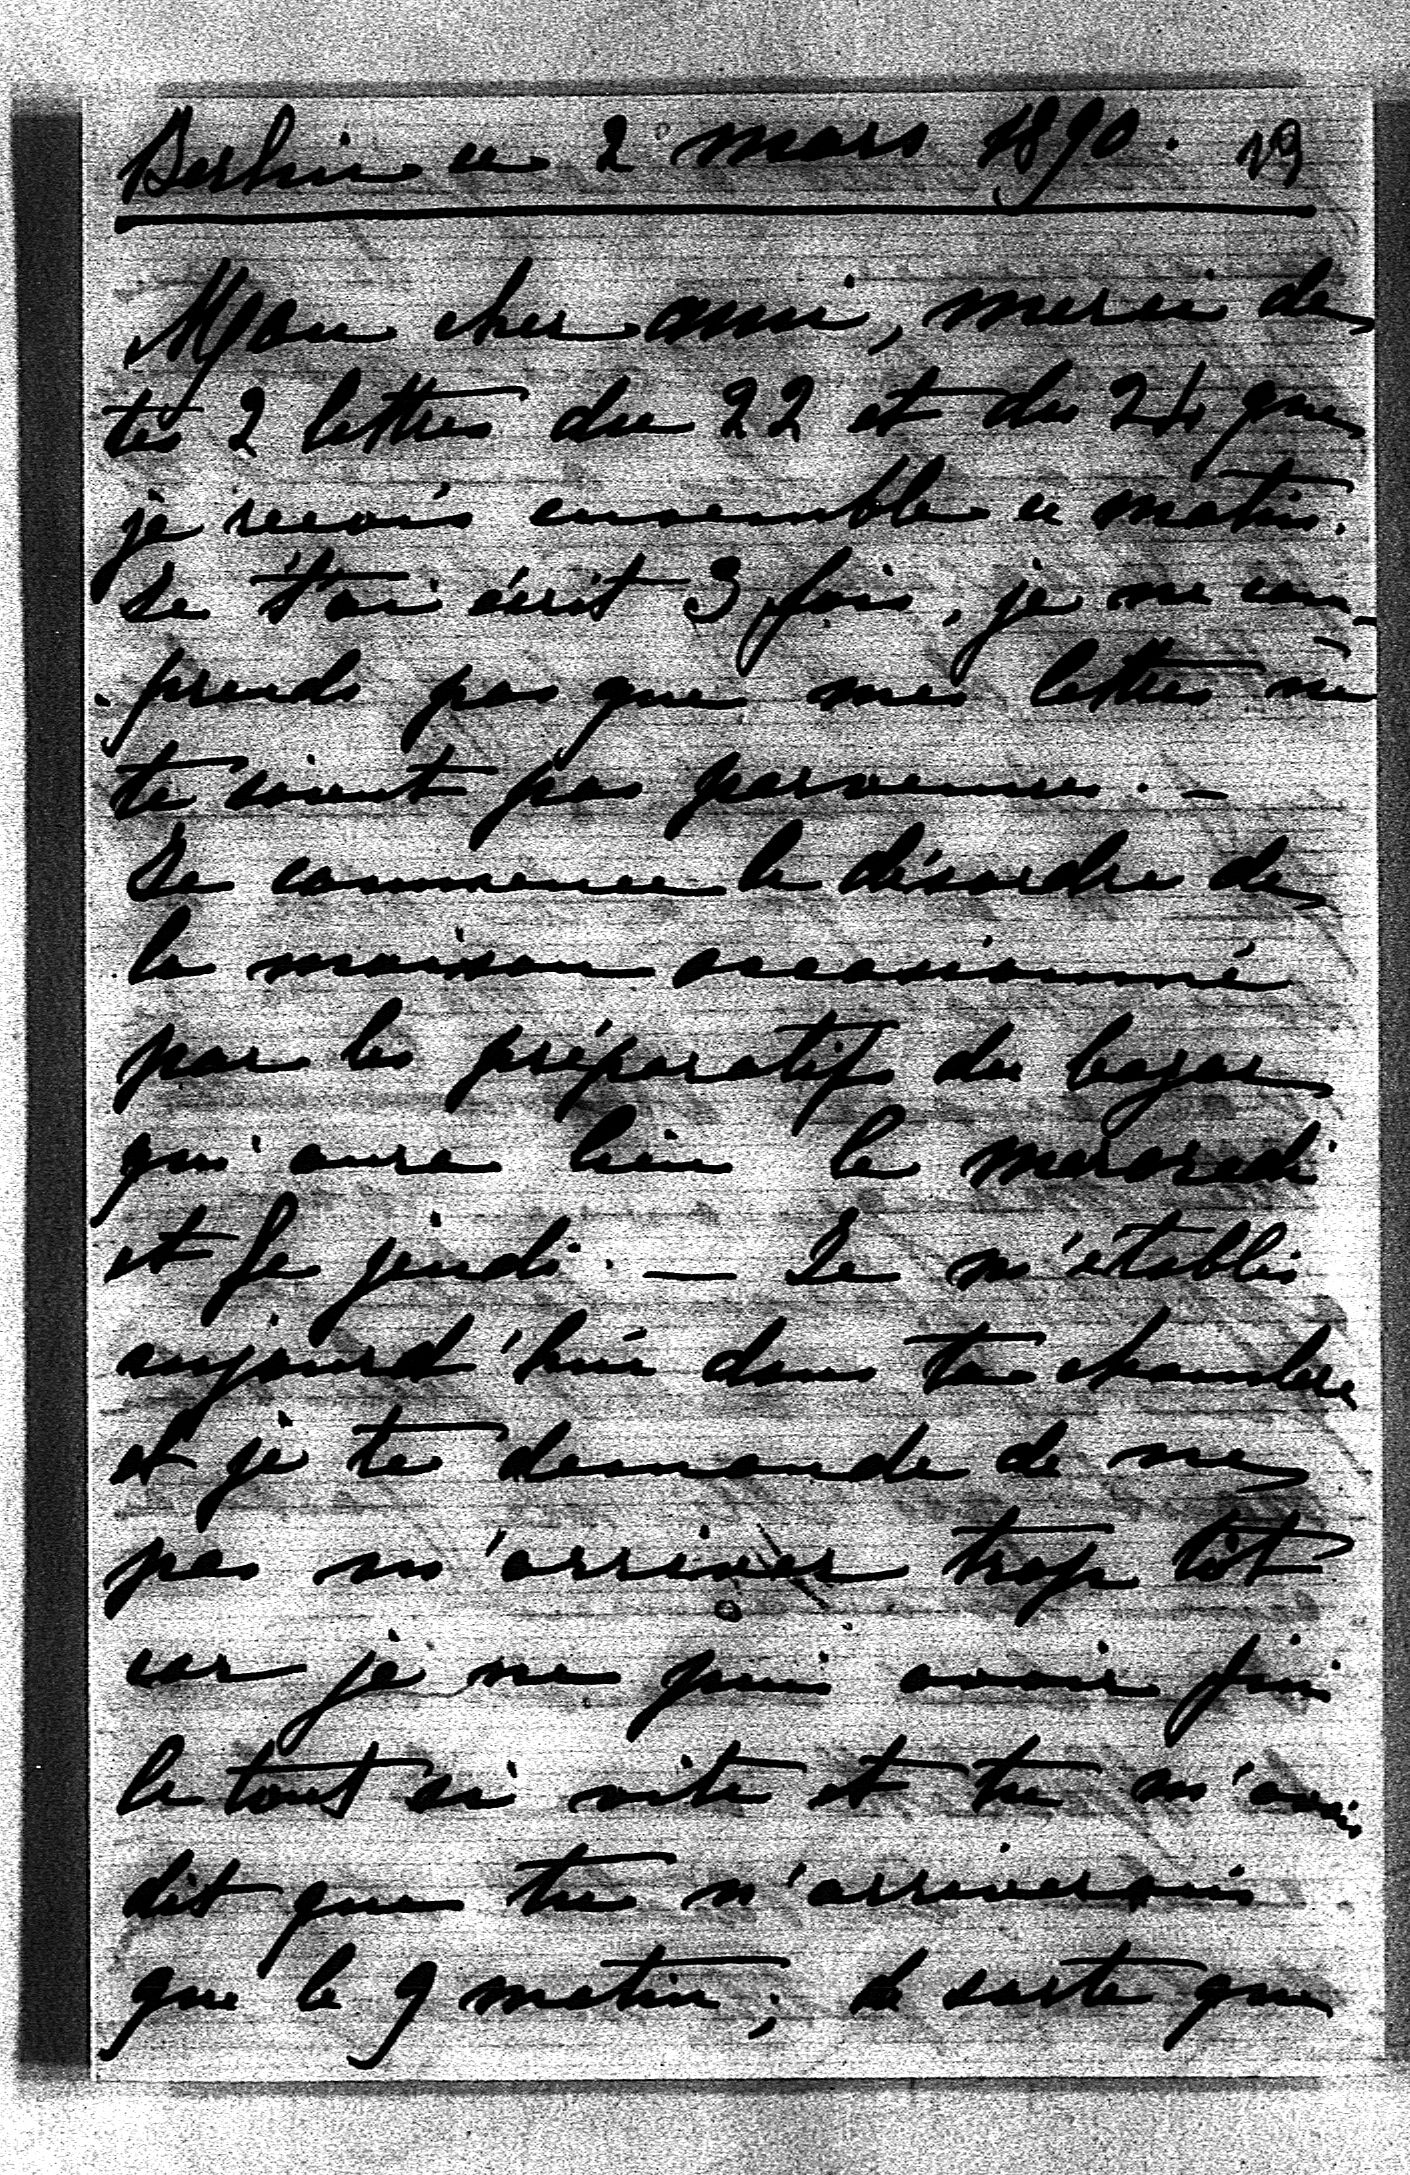 Berlin ce 2 mars 1890. 19
Mon cher ami, merci de
tes 2 lettres du 22 et du 24 que
je reçois ensemble ce matin.
Je t'ai écrit 3 fois, je ne com-
prends pas que mes lettres ne
te soient pas parvenues. —
Je commence le désordre de
la maison occasionné
par les préparatifs du bazar
qui aura lieu le mercredi
et le jeudi. — Je m'établis
aujourd'hui dans ta chambre
et je te demande de ne
pas m'arriver trop tôt
car je ne puis avoir fini
le tout si vite et tu m'avais
dit que tu n'arriverais
que le 9 matin; de sorte que